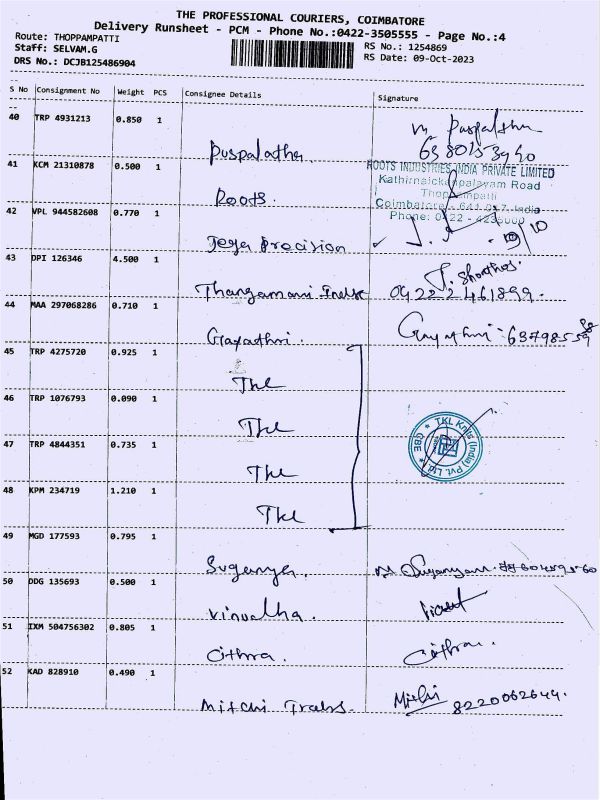 THE PROFESSIONAL COURIERS, COIMBATORE
Delivery Runsheet - PCM - Phone No.:0422-3505555 - Page No.:4
Route: THOPPAMPATTI
RS No.: 1254869
Staff: SELVAM.G
RS Date: 09-Oct-2023
DRS No.: DCJB125486904
S No Consignment No Weight PCS Consignee Details Signature
40 TRP 4931213 0.850 1
Puspalatha. 
41 KCM 21310878 0.500 1
ROOTS INDUSTRIES INDIA PRIVATE LIMITED
Kathirnaickenpalayam Road
Thoppampatti
Roots.
Coimbatore - 641 017. India
Phone: 0422 - 4235000
42 VPL 944582608 0.770 1
Precision
43 DPI 126346 4.500 1
Thangamani 04222461899.
44 MAA 297068286 0.710 1
Gayathri. Gayathri
45 TRP 4275720 0.925 1
TKL
46 TRP 1076793 0.090 1
TKL
TKL Knits (India) Pvt. Ltd. CBE
47 TRP 4844351 0.735 1
TKL
48 KPM 234719 1.210 1
TKL
49 MGD 177593 0.795 1
Suganya.
50 DDG 135693 0.500 1
51 IXM 504756302 0.805 1
Cithra.
52 KAD 828910 0.490 1
Mitchi 8220062644.